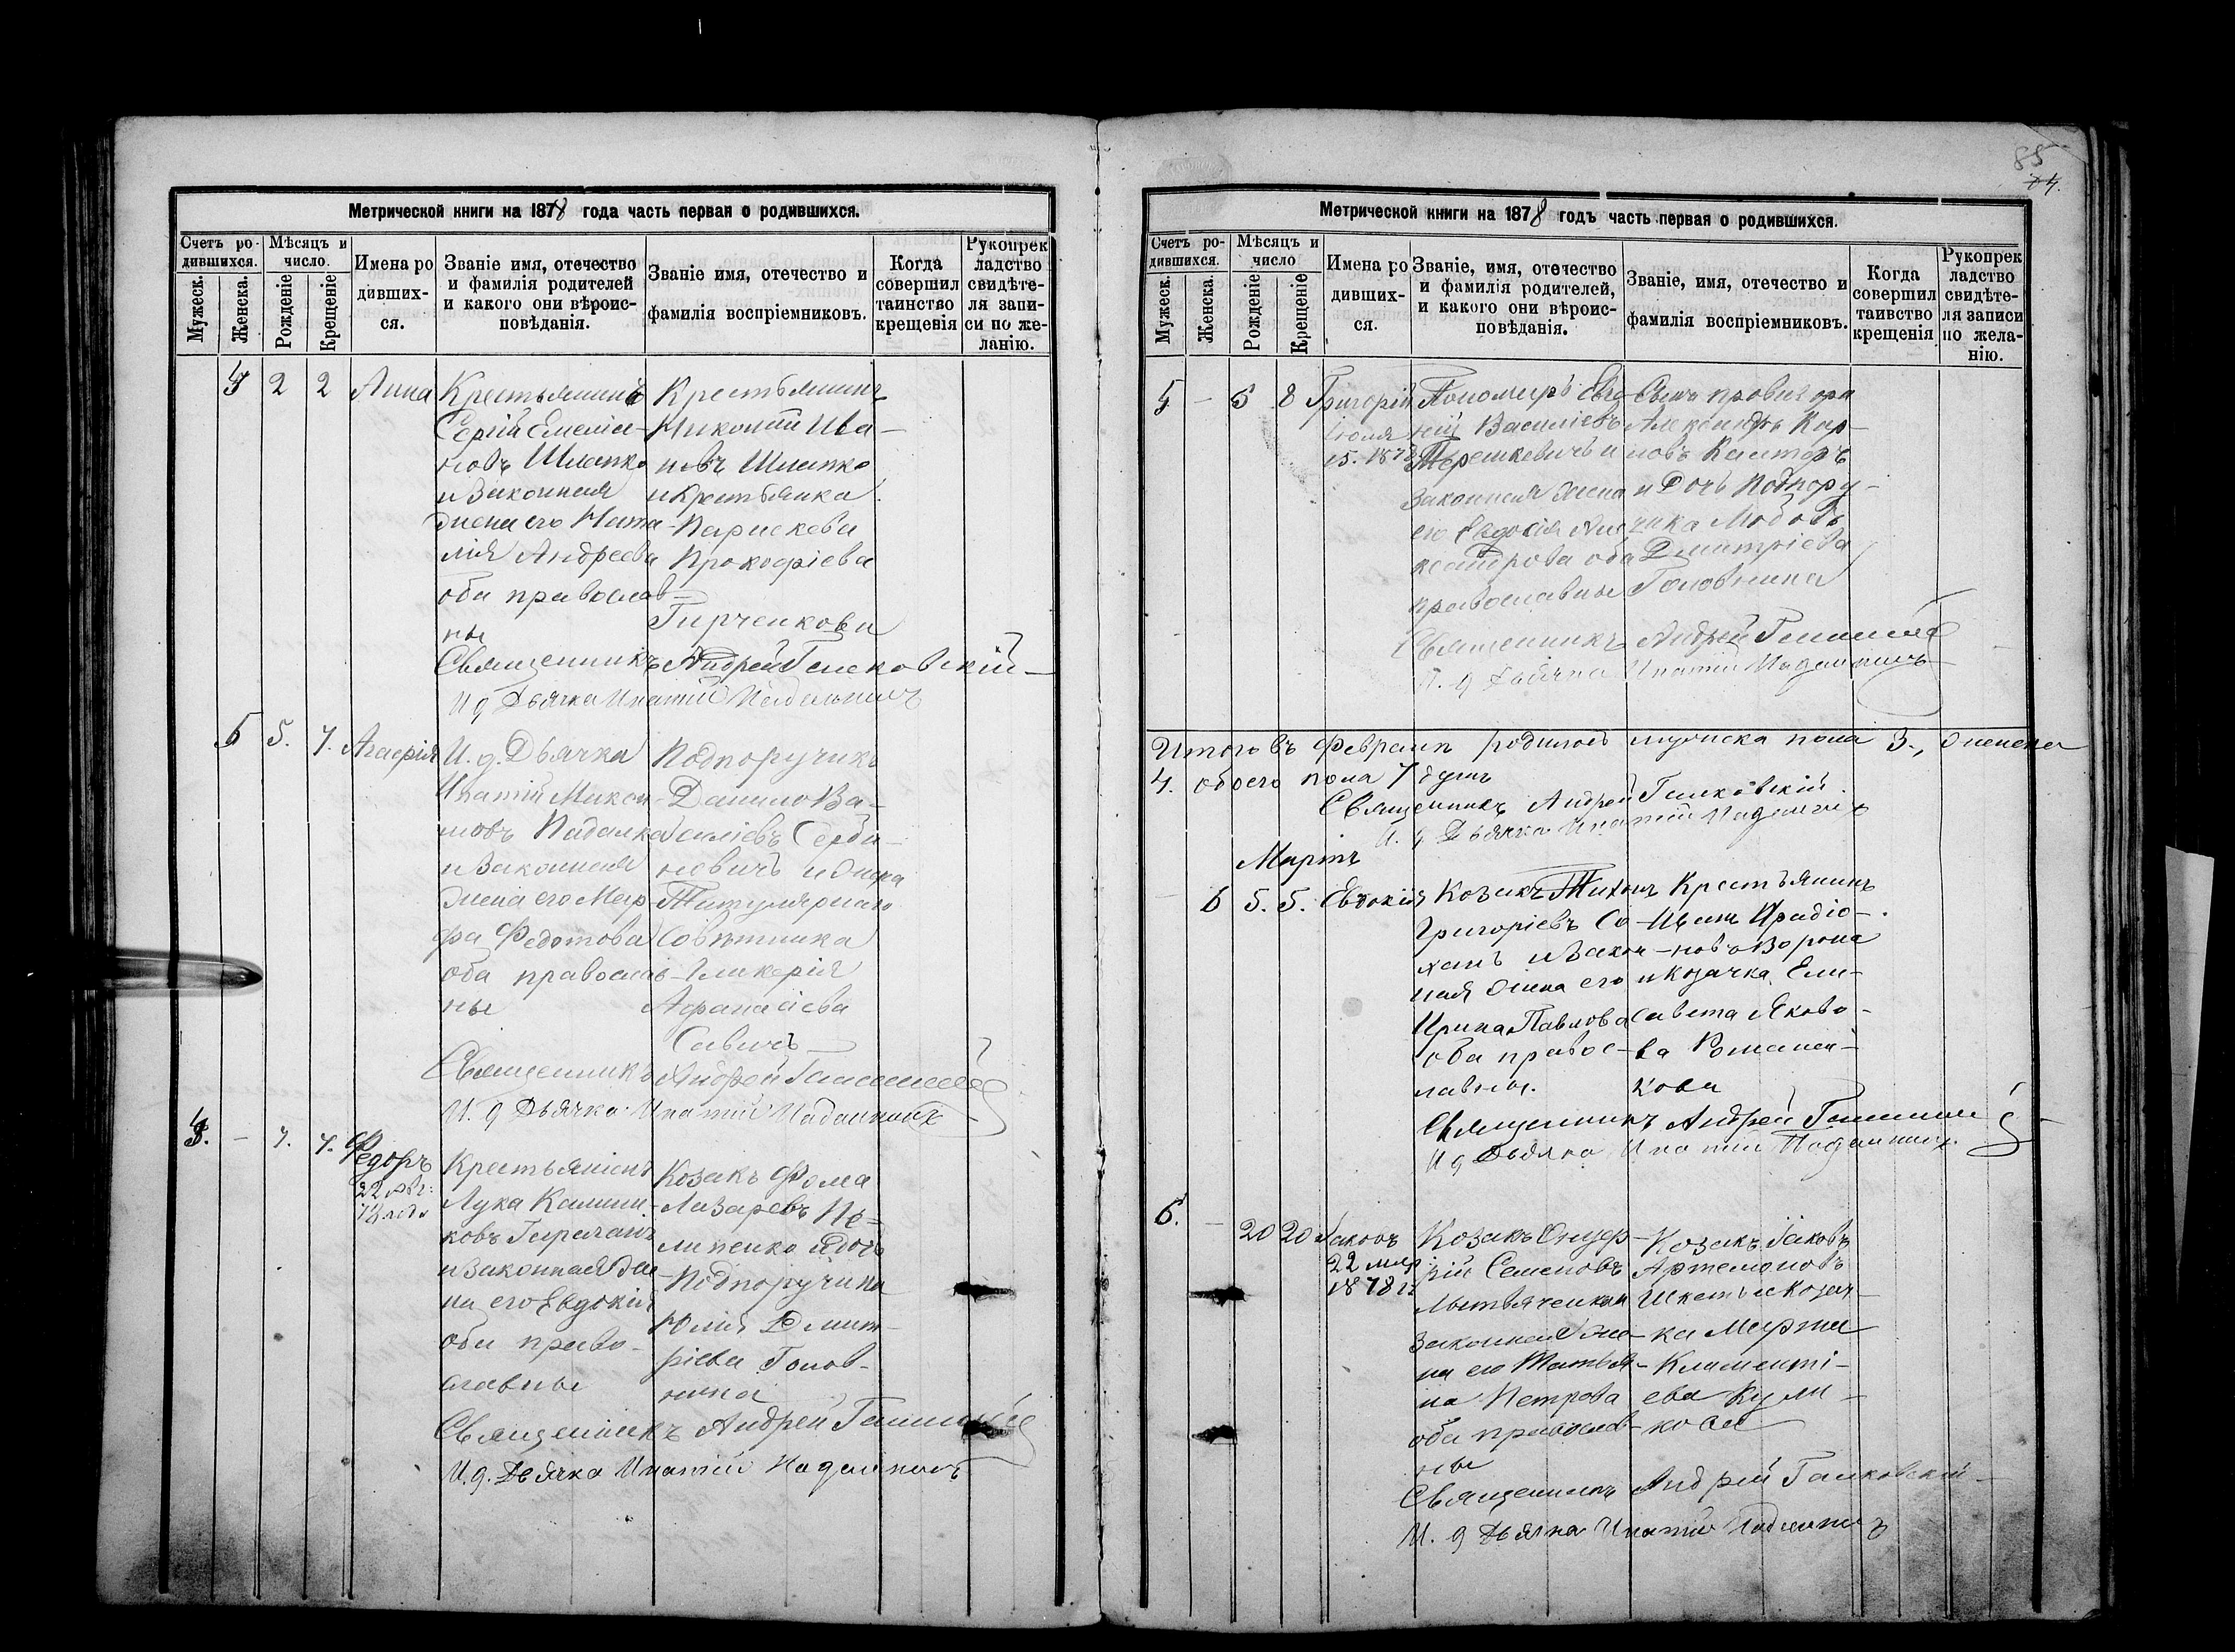 Метрической книги на 1878 года часть первая о родившихся.
Счетъ ро-
дившихся.
Мѣсяцъ и
число.
Мужеск.
Женска.
Рожденіе
Крещеніе
Имена ро
дивших-
ся.
Званіе имя, отечество
и фамилія родителей
и какого они вѣроис-
повѣданія.
Званіе имя, отечество и
фамилія воспріемниковъ.
Когда
совершил
таинство
крещенія
Рукопрек
ладство
свидѣте-
ля запи-
си по же-
ланію.
2 2 Анна
Крестьянинъ
Сергій Емелія-
новъ Шлапко
и Законная
жена его Ната-
лія Андреева
оба православ-
ны
Крестьянинъ
Ива-
новъ Шлапко
и Крестьянка
Параскева
Прокофіева
Священникъ Андрей Галковскій
И д Дьячка Ипатій
5. 7. Агафія
И. д. Дьячка
Ипатій
Падалка
и Законная
жена его Мар-
фа Федотова
оба православ-
ны
Подпоручикъ
Данило Ва-
силіевъ Серба-
новичъ и
Титулярнаго
Совѣтника
Гликерія
Афанасіева
Савичъ
Священникъ Андрей
И. д Дьячка Ипатій
7. 7. Федоръ
Крестьянинъ
Лука
и Законная же-
на его Евдокія
оба право-
славны
Козакъ Фома
Лазаревъ Пи-
липенко и дочь
Подпоручика
Юлія Дмит-
ріева Голов-
нина
Священникъ Андрей
И. д. Дьячка Ипатій
85
74.
Метрической книги на 1878 годъ часть первая о родившихся.
Счетъ ро-
дившихся.
Мѣсяцъ и
число
Мужеск.
Женска.
Рожденіе
Крещеніе
Имена ро
дивших-
ся.
Званіе, имя, отечество
и фамилія родителей,
и какого они вѣроис-
повѣданія.
Званіе, имя, отечество и
фамилія воспріемниковъ.
Когда
совершил
таинство
крещенія
Рукопрек
ладство
свидѣте-
ля записи
по жела-
нію.
5 - 8 Григорій
Іюля
15. 1878
Пономарь Евге-
ній Василіевъ
Терешкевичъ и
законная жена
его Евдокія Але-
ксандрова оба
православны
Сынъ провизора
Александръ Кар-
повъ Канторъ
и Дочь Подпору-
чика Любовь
Дмитріева
Головнина
Священникъ Андрей
Дьячка Ипатій
Итого въ Февралѣ родилось мужеска пола 3., женска
4. обоего пола 7 душъ
Священникъ Андрей Галковскій.
И. д Дьячка Ипатій
Мартъ
- 6 5. 5. Евдокія
Козакъ Тихонъ
Григоріевъ Со-
ханъ и Закон-
ная жена его
Ирина Павлова
оба правос-
лавны.
Крестьянинъ
Иванъ Иродіо-
новъ Ворона
и Козачка Ели-
савета Яково-
ва Романен-
кова
Священникъ Андрей
И д Дьячка Ипатій
6. - 20 20 Іаковъ
22 мар
1878 г.
Козакъ Онуф-
рій Семеновъ
Литвяченко и
Законная же-
на его Татья-
на Петрова
оба православ-
ны
Козакъ Іаковъ
Артемоновъ
и Козач-
ка Марта
Климентi-
ева Кули-
кова
Священникъ Андрей Галковскій
И. д Дьячка Ипатій